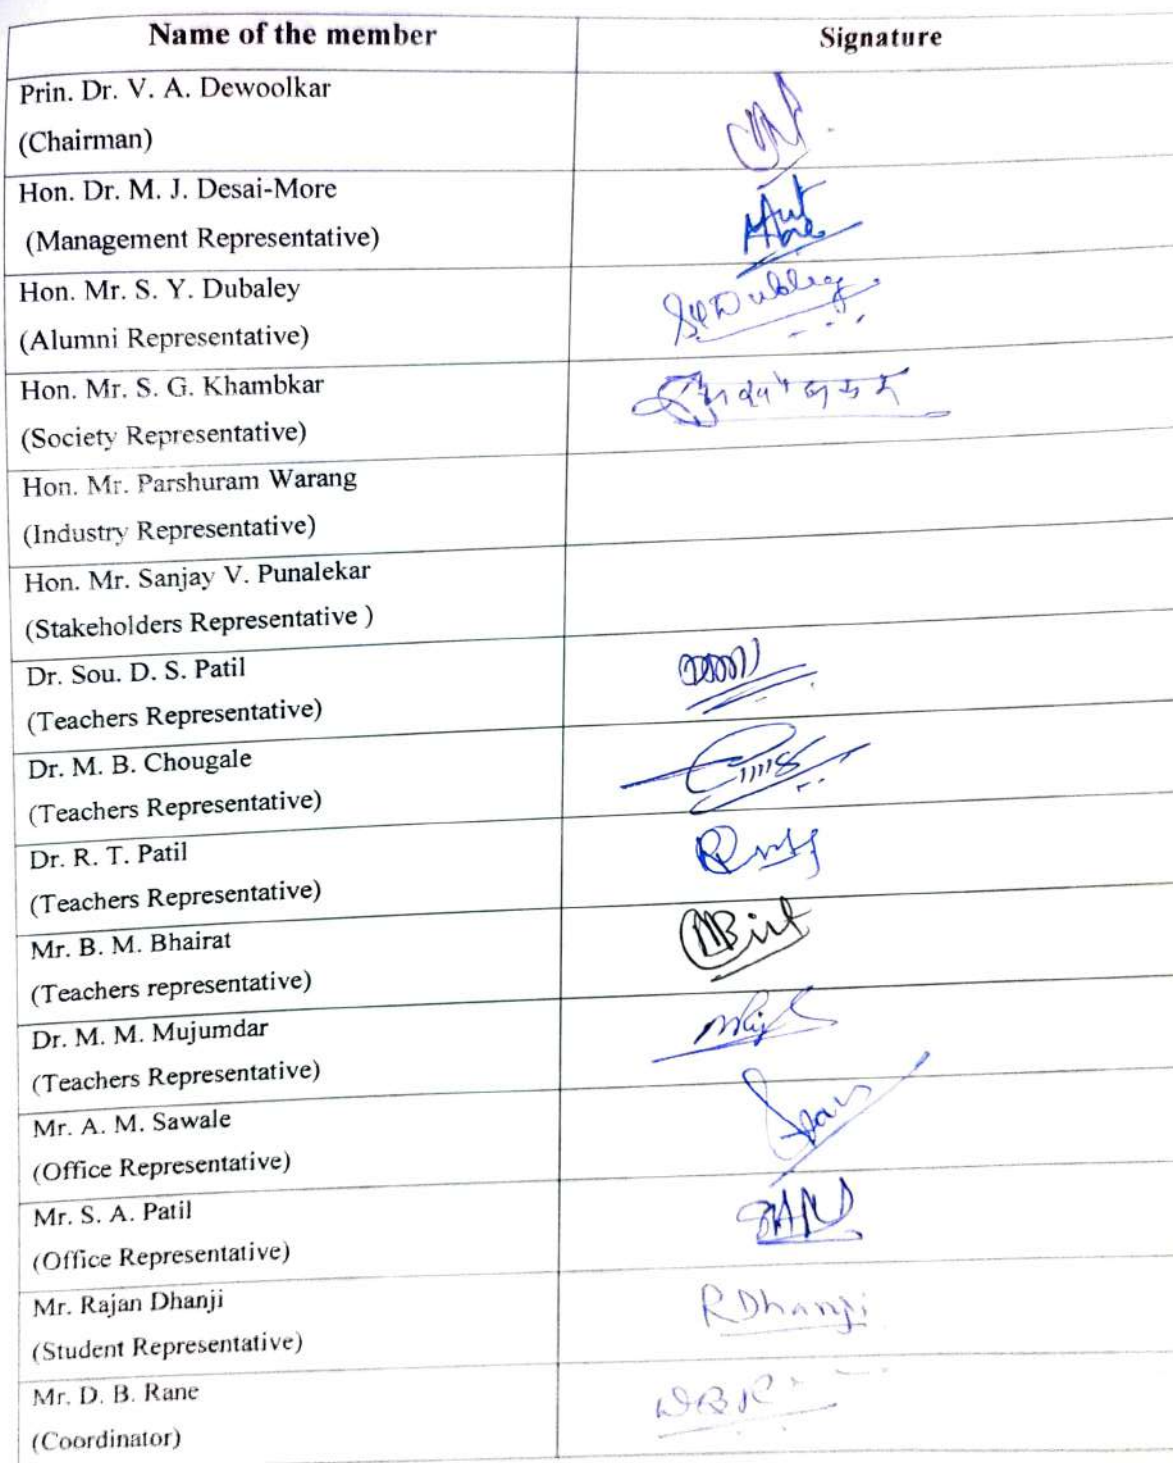 Name of the member
Signature
Prin. Dr. V. A. Dewoolkar
(Chairman)
Hon. Dr. M. J. Desai-More
(Management Representative)
Hon. Mr. S. Y. Dubaley
SYDubley
(Alumni Representative)
Hon. Mr. S. G. Khambkar
(Society Representative)
Hon. Mr. Parshuram Warang
(Industry Representative)
Hon. Mr. Sanjay V. Punalekar
(Stakeholders Representative )
Dr. Sou. D. S. Patil
(Teachers Representative)
Dr. M. B. Chougale
(Teachers Representative)
Dr. R. T. Patil
(Teachers Representative)
Mr. B. M. Bhairat
(Teachers representative)
Dr. M. M. Mujumdar
(Teachers Representative)
Mr. A. M. Sawale
(Office Representative)
Mr. S. A. Patil
(Office Representative)
Mr. Rajan Dhanji
RDhanji
(Student Representative)
Mr. D. B. Rane
(Coordinator)